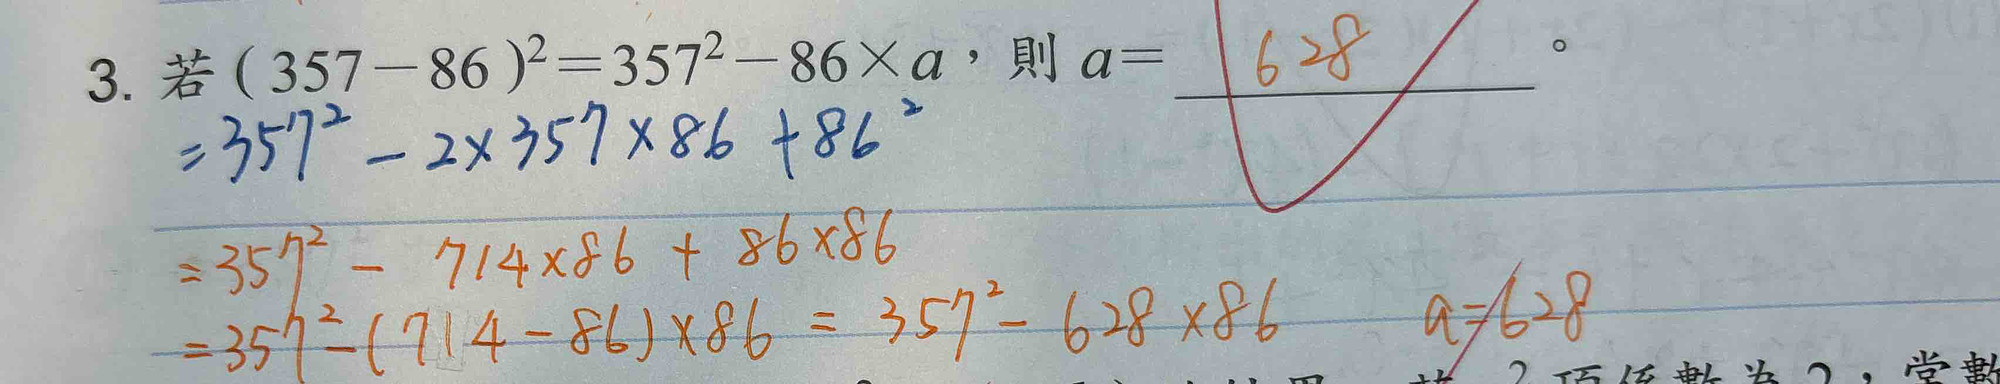 3. 若(357－86)²＝357²－86×a，則 a＝ 628 。
=357² - 2×357×86 +86²
=357² - 714×86 + 86×86
=357²-(714-86)×86 = 357² - 628×86 a=628
2 項係數為 2，常數